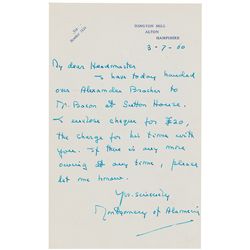 ISINGTON MILL
ALTON
HAMPSHIRE
3-7-60
My dear Headmaster
I have today handed
over Alexander Bracher to
Mr. Bacon at Sutton House.
I enclose cheque for £20,
the charge for his time with
you. If there is any more
owing at any time, please
let me know.
Yrs. sincerely
Montgomery of Alamein